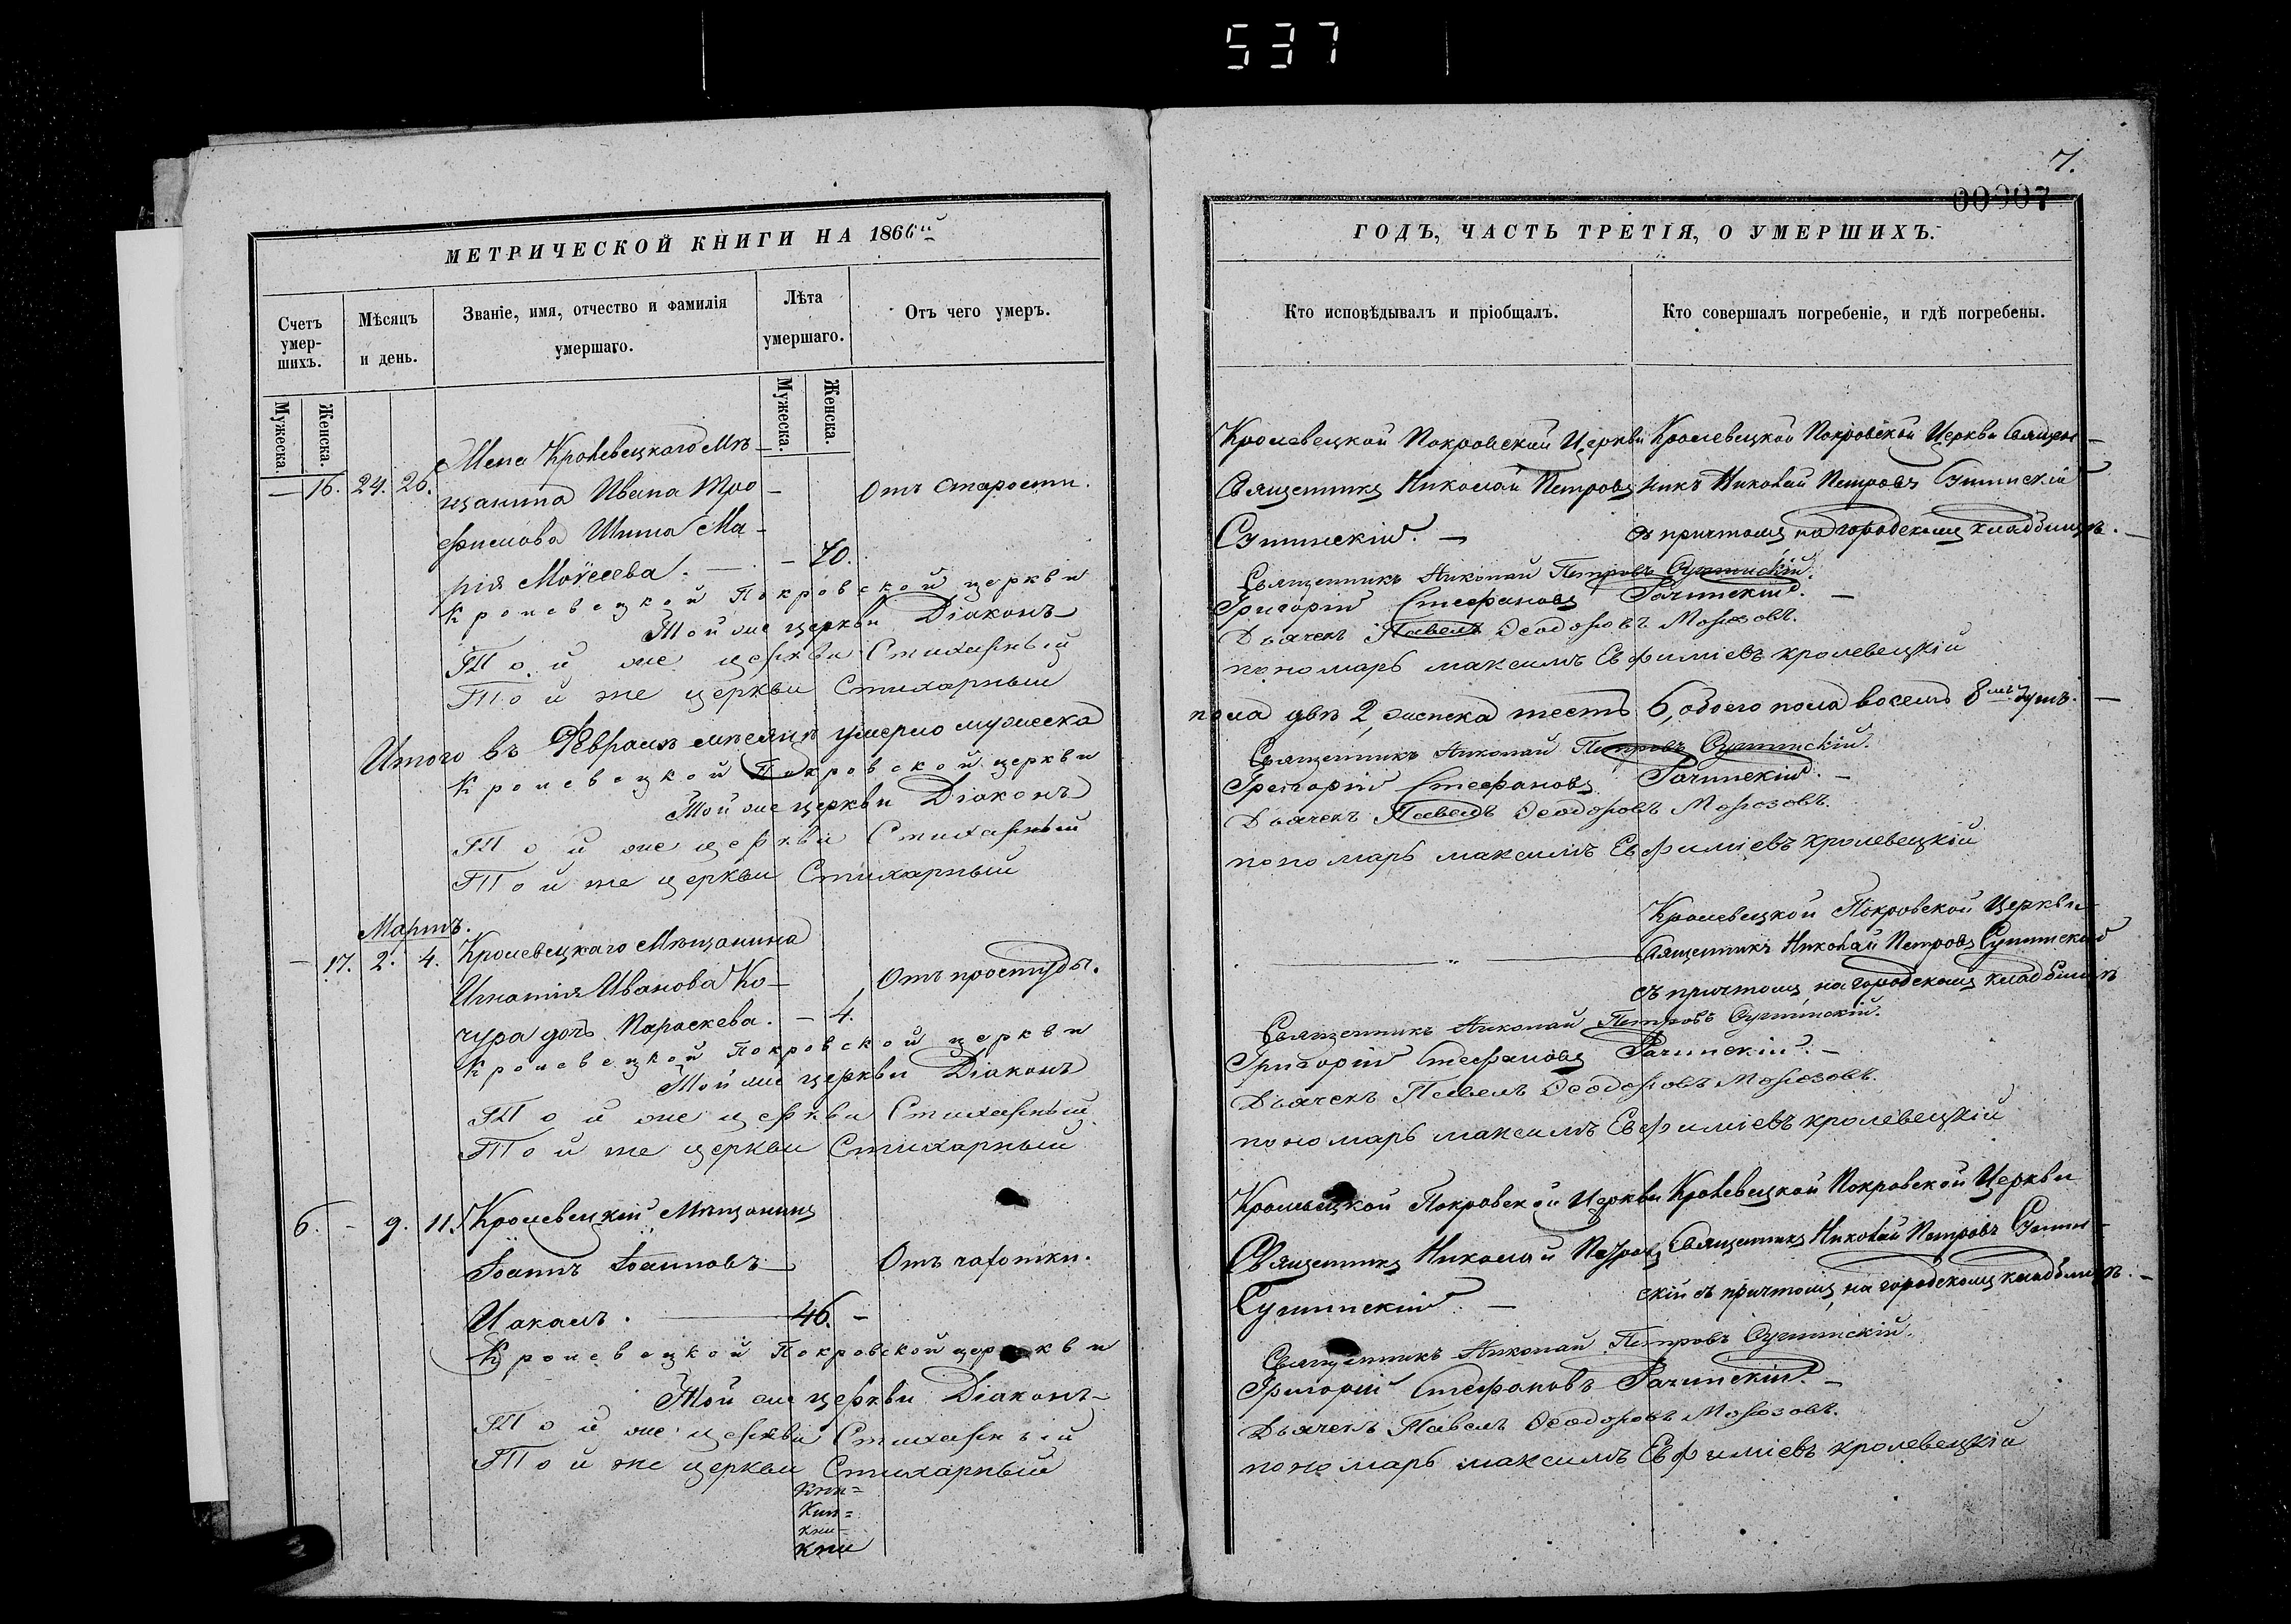 537
7.
00907
МЕТРИЧЕСКОЙ КНИГИ НА 1866й
Счетъ умер-шихъ.
Мѣсяцъ и день.
Званіе, имя, отчество и фамилія умершаго.
Лѣта умершаго.
Отъ чего умеръ.
Мужеска.
Женска.
Мужеска.
Женска.
Кролевецкаго Мѣ-
— 16. 24. 26. щанина Ивана Тро- Отъ старости.
фимова Шина Ма-
рія Моѵсеева. — 70.
Кролевецкой Покровской церкви
Той же церкви Діаконъ
Той же церкви Стихарный
Той же церкви Стихарный
Итого въ Февралѣ мѣсяцѣ умерло мужеска
Кролевецкой Покровской церкви
Той же церкви Діаконъ
Той же церкви Стихарный
Той же церкви Стихарный
Мартъ.
— 17. 2. 4. Кролевецкаго Мѣщанина
Игнатія Иванова Ко- Отъ простуды.
чура дочь Параскева. — 4.
Кролевецкой Покровской церкви
Той же церкви Діаконъ
Той же церкви Стихарный
Той же церкви Стихарный
6. — 9. 11. Кролевецкій Мѣщанинъ
Іоаннъ Іоанновъ Отъ чахотки.
46. —
Кролевецкой Покровской церкви
Той же церкви Діаконъ
Той же церкви Стихарный
Той же церкви Стихарный
Кни=
Кни=
кни-
кни
ГОДЪ, ЧАСТЬ ТРЕТІЯ, О УМЕРШИХЪ.
Кто исповѣдывалъ и пріобщалъ.
Кто совершалъ погребеніе, и гдѣ погребены.
Кролевецкой Покровской Церкви Кролевецкой Покровской Церкви Священ-
Священникъ Николай Петровъ никъ Николай Петровъ Сушинскій
Сушинскій. — съ причтомъ на городскомъ кладбищѣ. —
Священникъ Николай Петровъ Сушинскій.
Григорій Стефановъ Рачинскій. —
Дьячекъ Павелъ Ѳеодоровъ Морозовъ.
пономарь максимъ Евфиміевъ кролевецкій
пола двѣ 2, женска шесть 6, обоего пола восемь 8мъ душъ. —
Священникъ Николай Петровъ Сушинскій.
Григорій Стефановъ Рачинскій. —
Дьячекъ Павелъ Ѳеодоровъ Морозовъ.
пономарь максимъ Евфиміевъ кролевецкій
Кролевецкой Покровской Церкви
Священникъ Николай Петровъ Сушинскій
съ причтомъ на городскомъ кладбищѣ
Священникъ Николай Петровъ Сушинскій.
Григорій Стефановъ Рачинскій. —
Дьячекъ Павелъ Ѳеодоровъ Морозовъ.
пономарь максимъ Евфиміевъ кролевецкій
Кролевецкой Покровской Церкви Кролевецкой Покровской Церкви
Священникъ Николай Петровъ Священникъ Николай Петровъ Сушин-
Сушинскій. — скій съ причтомъ на городскомъ кладбищѣ. —
Священникъ Николай Петровъ Сушинскій.
Григорій Стефановъ Рачинскій. —
Дьячекъ Павелъ Ѳеодоровъ Морозовъ.
пономарь максимъ Евфиміевъ кролевецкій